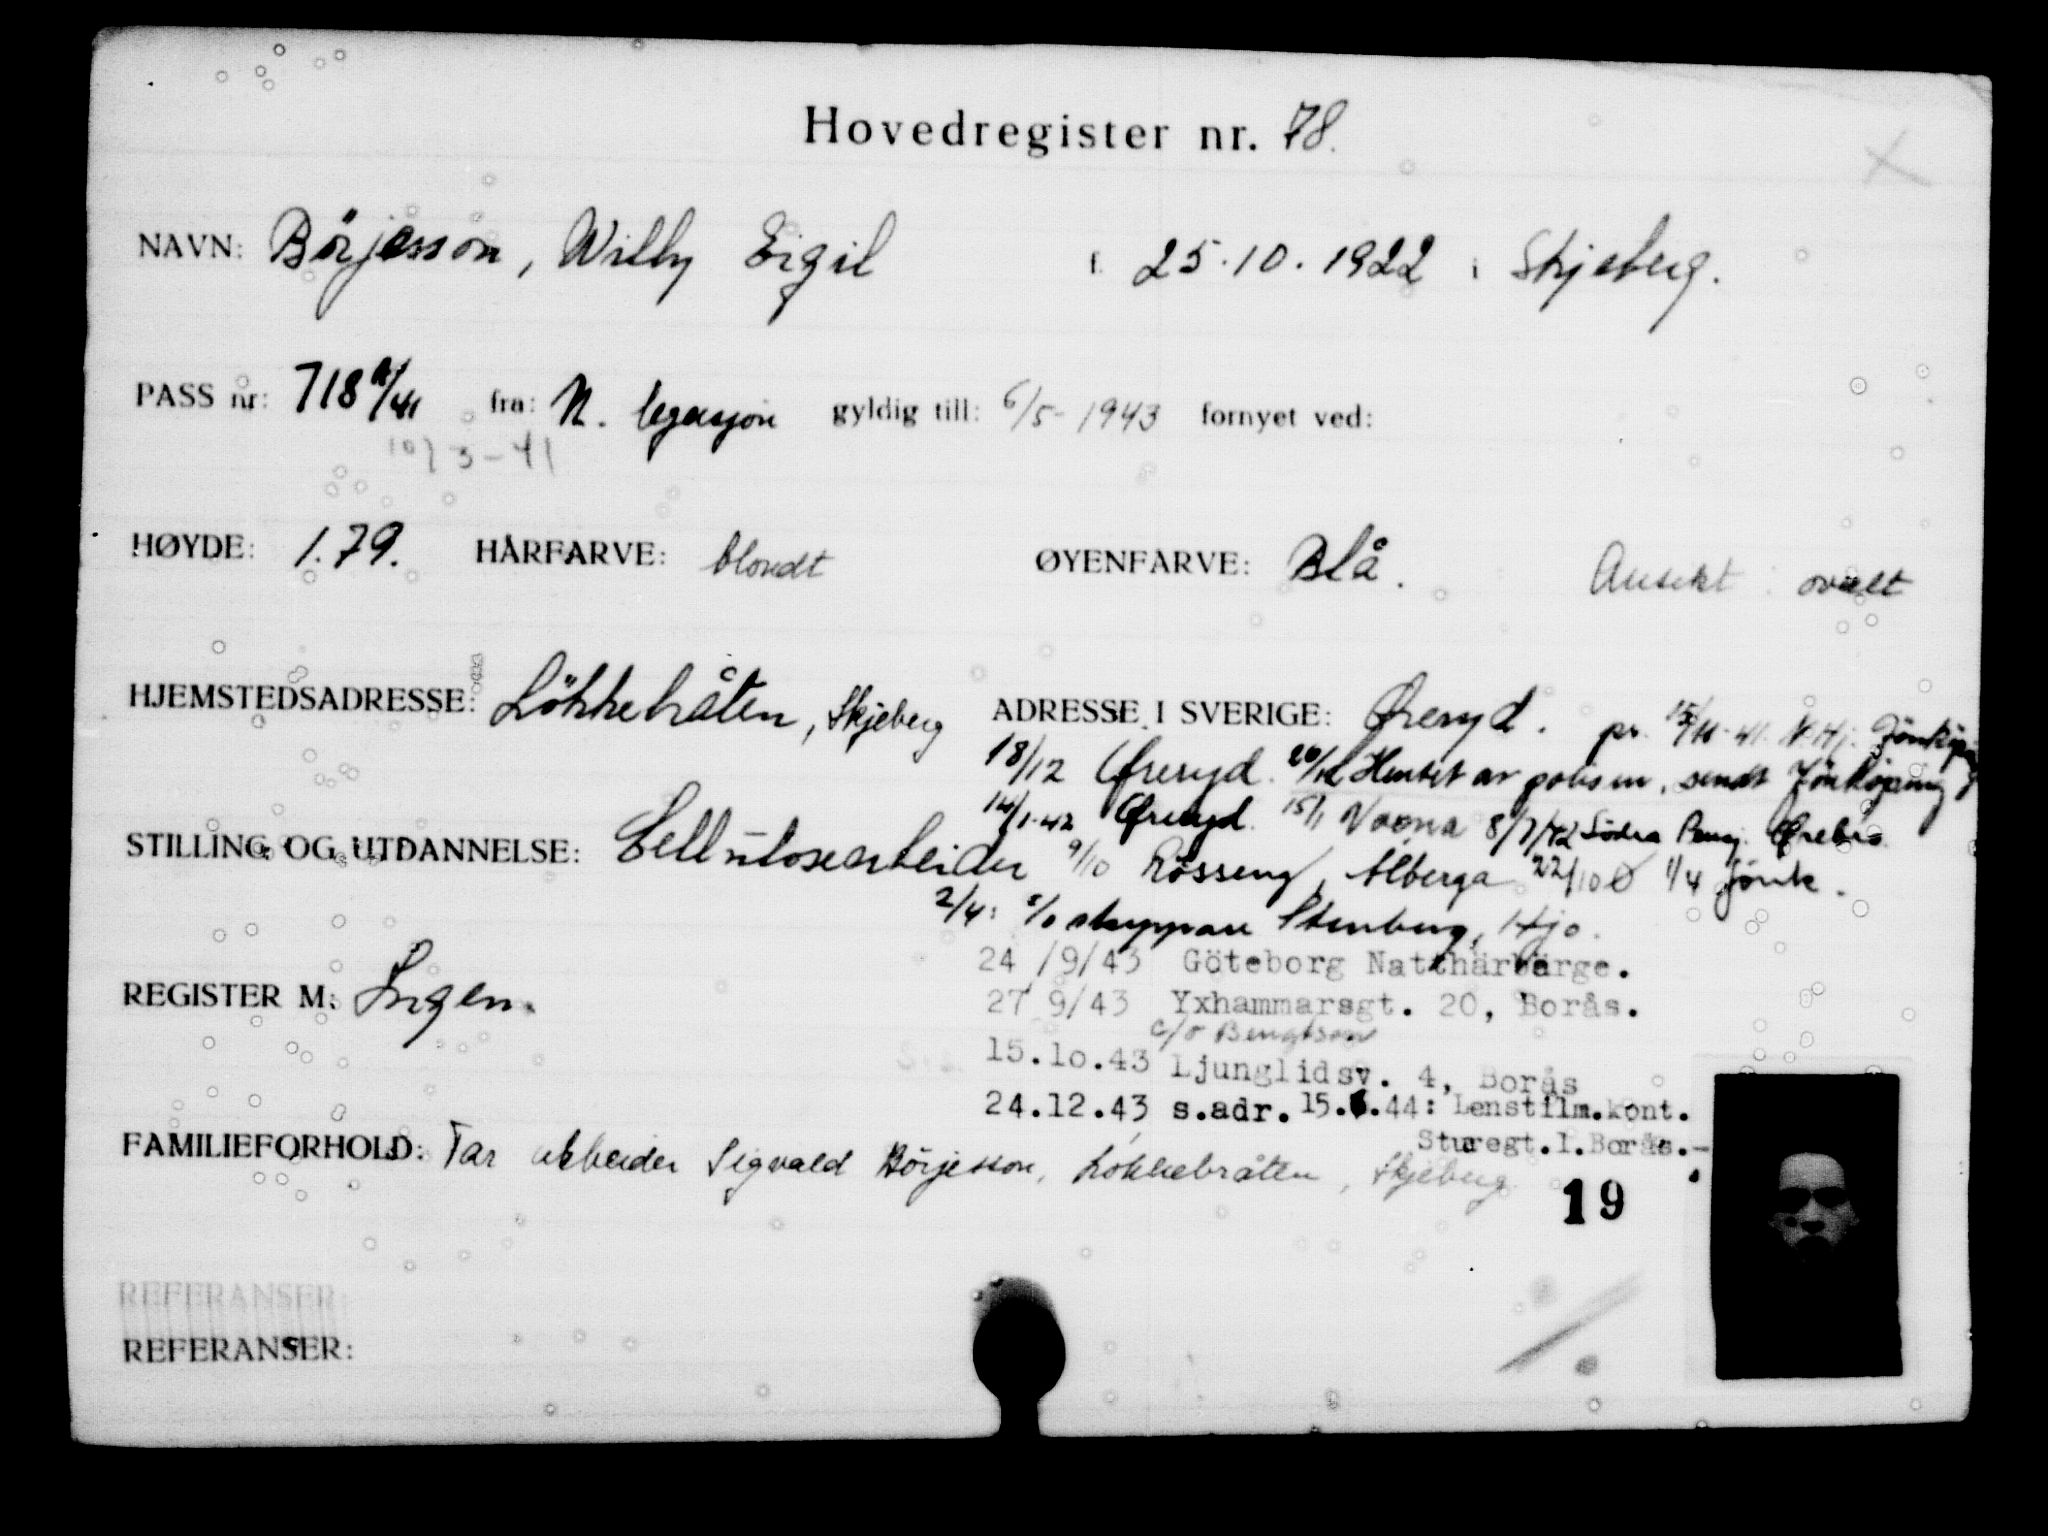 Hovedregister nr. 78.
NAVN: Börjesson, Willy Eigil f. 25.10.1922 i Skjeberg.
PASS nr: 718 /41 fra: N. legasjon gyldig till: 6/5-1943 fornyet ved:
10/3-41
HØYDE: 1.79. HÅRFARVE: blondt ØYENFARVE: Blå. Ansikt: ovalt
HJEMSTEDSADRESSE: Lökkebråten, Skjeberg ADRESSE I SVERIGE: Øreryd. pr. 15/11-41. N.Hj. Jönköping
18/12 Øreryd. 20/12 Hentet av polisen, sendt Jönköping
14/1-42 Øreryd. 15/1 Voxna 8/7/42 Södra Ørebro
STILLING OG UTDANNELSE: Cellulosearbeider 9/10 Rösseng, Alberga 22/10 Ø 1/4 Jönk.
2/4: c/o skeppare Stenberg, Hjo.
24/9/43 Göteborg Natthärbärge.
REGISTER M: Ingen.
27 9/43 Yxhammarsgt. 20, Borås.
c/o Bengtson
15.10.43 Ljunglidsv. 4, Borås
24.12.43 s.adr. 15.6.44: Lenstilm.kont.
Sturegt.1.Borås.-
FAMILIEFORHOLD: Far arbeider Sigvald Börjesson, Lökkebråten, Skjeberg
19
REFERANSER:
REFERANSER: